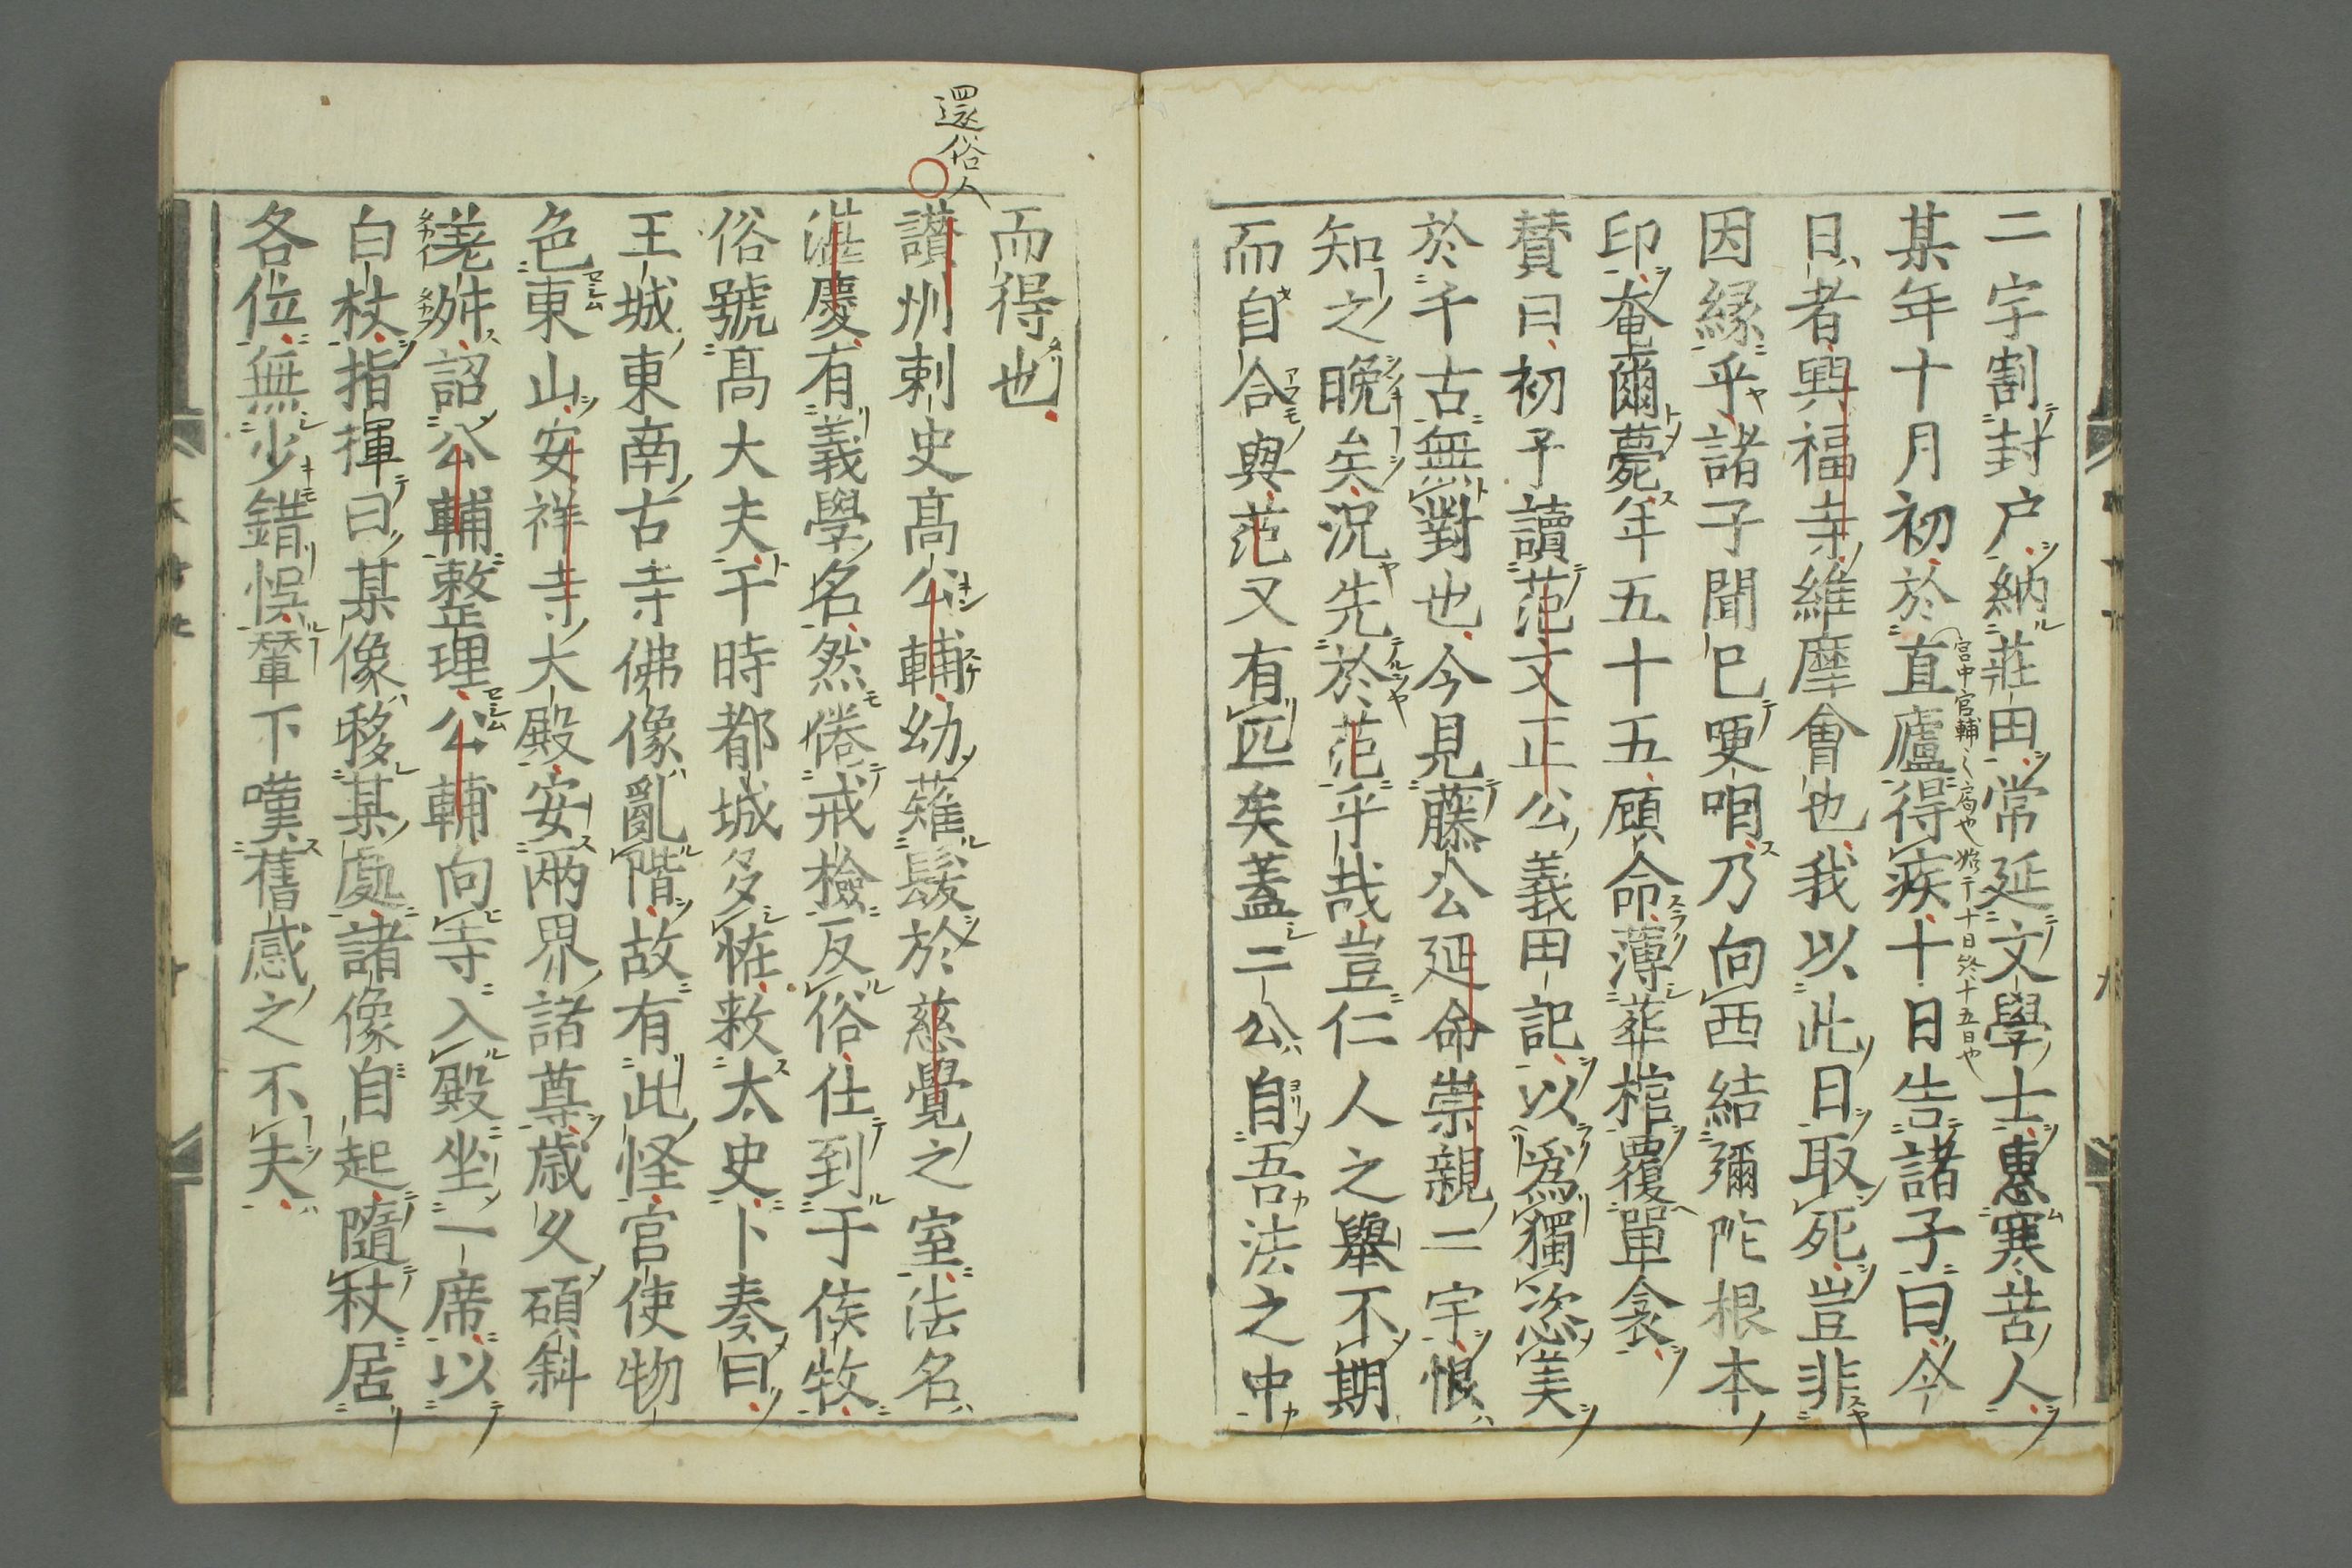 二宇割封户納莊田常延文學士惠寒苦人
某年十月初於直廬得疾十日告諸子曰今
宮中官輔之局也始于十日終十五日也
日者興福寺維摩會也我以此日取死豈非
因緣乎諸子聞已哽咽乃向西結彌陀根本
印奄爾薨年五十五顧命薄葬棺覆單衾
賛曰初予讀范文正公義田記以爲獨恣美
於千古無對也今見藤公延命崇親二宇恨
知之晩矣況先於范乎哉豈仁人之舉不期
而自合與范又有匹矣蓋二公自吾法之中
而得也
還俗人
讃州刺史髙公輔幼薙髮於慈覺之室法名
湛慶有義學名然倦戒檢反俗仕到于侯牧
俗號髙大夫于時都城多恠敕太史卜奏曰
王城東南古寺佛像亂階故有此怪官使物
色東山安祥寺大殿安兩界諸尊歳久碩斜
舛詔公輔整理公輔向寺入殿坐一席以
白杖指揮曰某像移某處諸像自起隨杖居
各位無少錯悞輦下嘆舊感之不夫